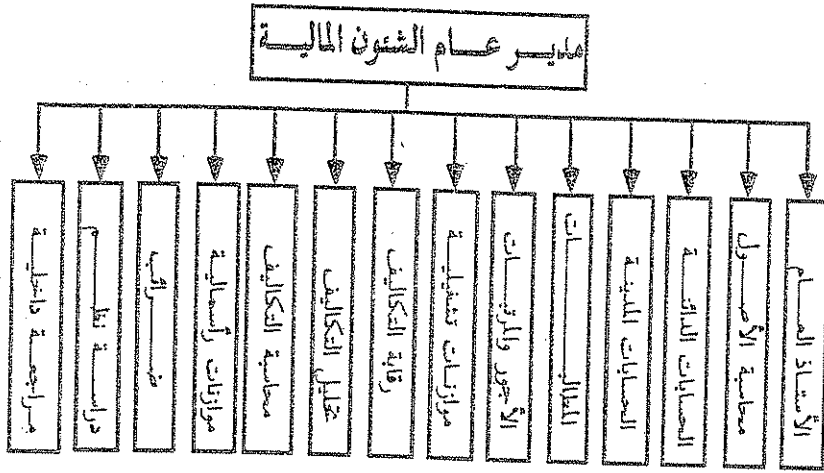 مديــر عــام الشئون الماليــة
الأستاذ العــام
محاسبة الأصــول
الحسابات الدائنــة
الحسابات المدينة
المطالبــــات
الأجور والمرتبــات
موازنــات تشغيليــة
رقابة التكاليف
تحليل التكاليف
محاسبة التكاليف
موازنات رأسمالية
ضــــرائب
دراســة نظــــم
مراجعــة داخليــة